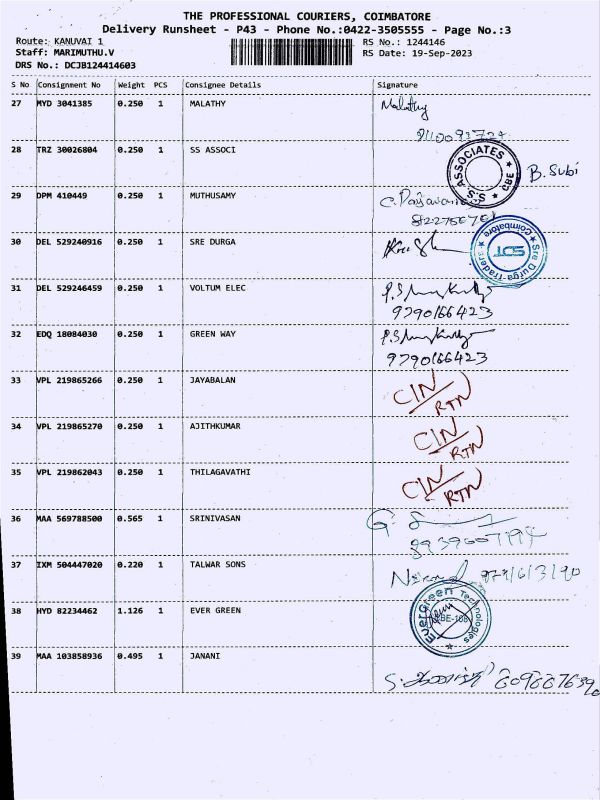 THE PROFESSIONAL COURIERS, COIMBATORE
Delivery Runsheet - P43 - Phone No.:0422-3505555 - Page No.:3
Route: KANUVAI 1 RS No.: 1244146
Staff: MARIMUTHU.V RS Date: 19-Sep-2023
DRS No.: DCJB124414603
S No Consignment No Weight PCS Consignee Details Signature
27 MYD 3041385 0.250 1 MALATHY Malathy
28 TRZ 30026804 0.250 1 SS ASSOCI S.S. ASSOCIATES CBE B. Subi
29 DPM 410449 0.250 1 MUTHUSAMY
30 DEL 529240916 0.250 1 SRE DURGA Sre Durga Traders Coimbatore SDT
31 DEL 529246459 0.250 1 VOLTUM ELEC
9790166423
32 EDQ 18084030 0.250 1 GREEN WAY
9790166423
33 VPL 219865266 0.250 1 JAYABALAN CIN/RTN
34 VPL 219865270 0.250 1 AJITHKUMAR CIN/RTN
35 VPL 219862043 0.250 1 THILAGAVATHI CIN/RTN
36 MAA 569788500 0.565 1 SRINIVASAN
37 IXM 504447020 0.220 1 TALWAR SONS
38 HYD 82234462 1.126 1 EVER GREEN EverGreen Technologies
39 MAA 103858936 0.495 1 JANANI